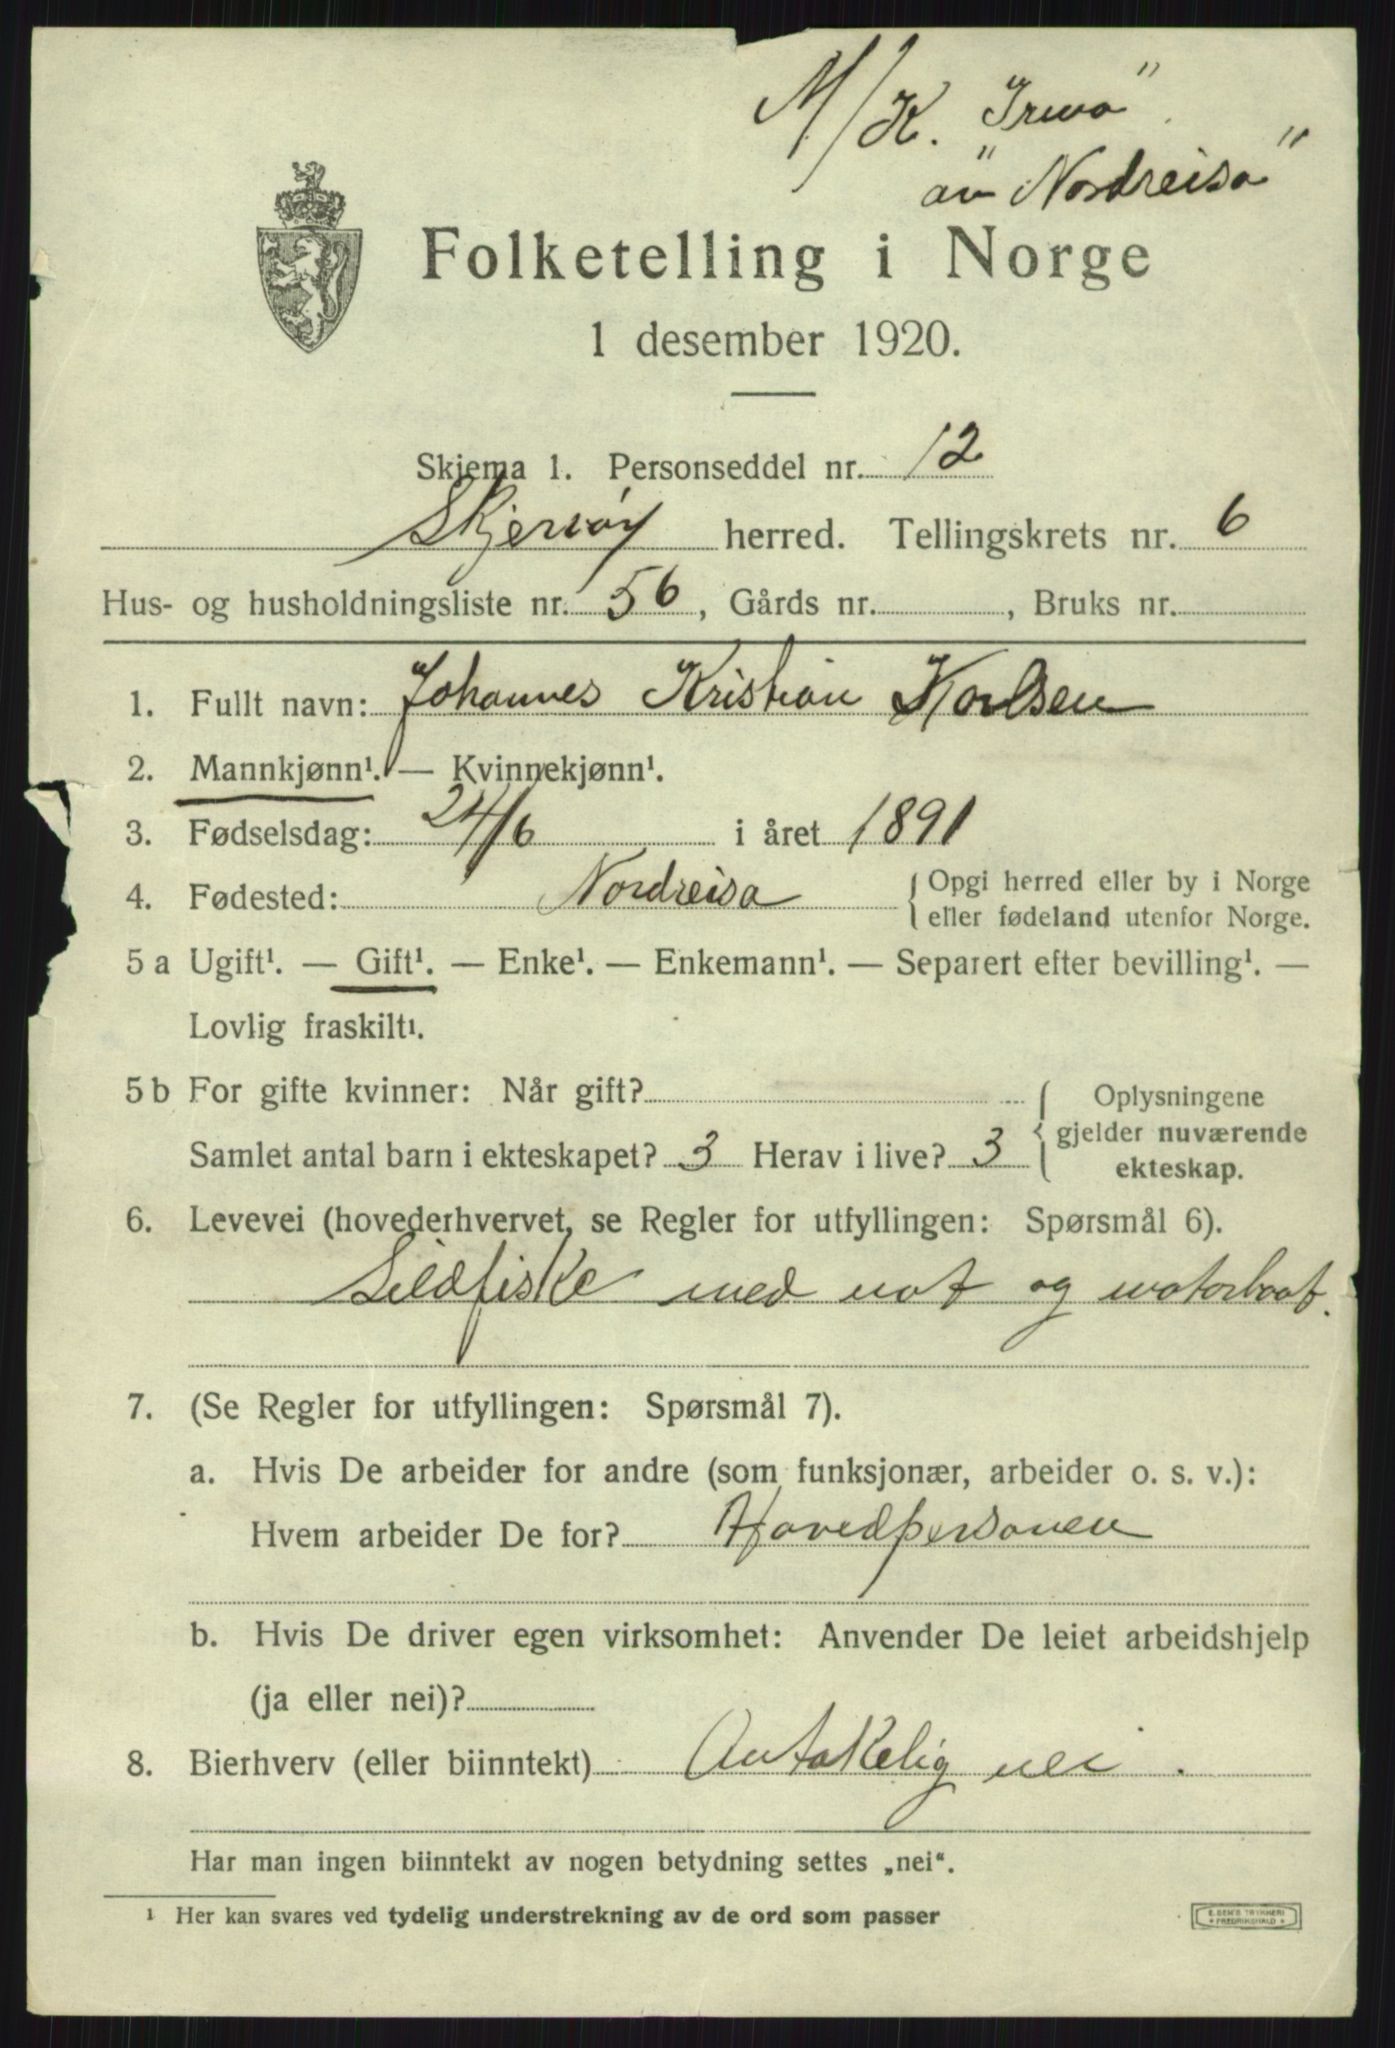 M/K. "Irma".
av "Nordreisa"
Folketelling i Norge
1 desember 1920.
Skjema 1. Personseddel nr. 12
Skjervøy herred. Tellingskrets nr. 6
Hus- og husholdningsliste nr. 56, Gårds nr. , Bruks nr.
1. Fullt navn: Johannes Kristian Karlsen
2. Mannkjønn¹. — Kvinnekjønn¹.
3. Fødselsdag: 24/6 i året 1891
4. Fødested: Nordreisa { Opgi herred eller by i Norge
eller fødeland utenfor Norge.
5 a Ugift¹. — Gift¹. — Enke¹. — Enkemann¹. — Separert efter bevilling¹. —
Lovlig fraskilt¹.
5 b For gifte kvinner: Når gift? { Oplysningene
gjelder nuværende
Samlet antal barn i ekteskapet? 3 Herav i live? 3 ekteskap.
6. Levevei (hovederhvervet, se Regler for utfyllingen: Spørsmål 6).
Sildfiske med not og motorbaat.
7. (Se Regler for utfyllingen: Spørsmål 7).
a. Hvis De arbeider for andre (som funksjonær, arbeider o. s. v.):
Hvem arbeider De for? Hovedpersonen
b. Hvis De driver egen virksomhet: Anvender De leiet arbeidshjelp
(ja eller nei)?
8. Bierhverv (eller biinntekt) Antakelig nei.
Har man ingen biinntekt av nogen betydning settes „nei“.
¹ Her kan svares ved tydelig understrekning av de ord som passer
E. SEM'S TRYKKERI
FREDRIKSHALD